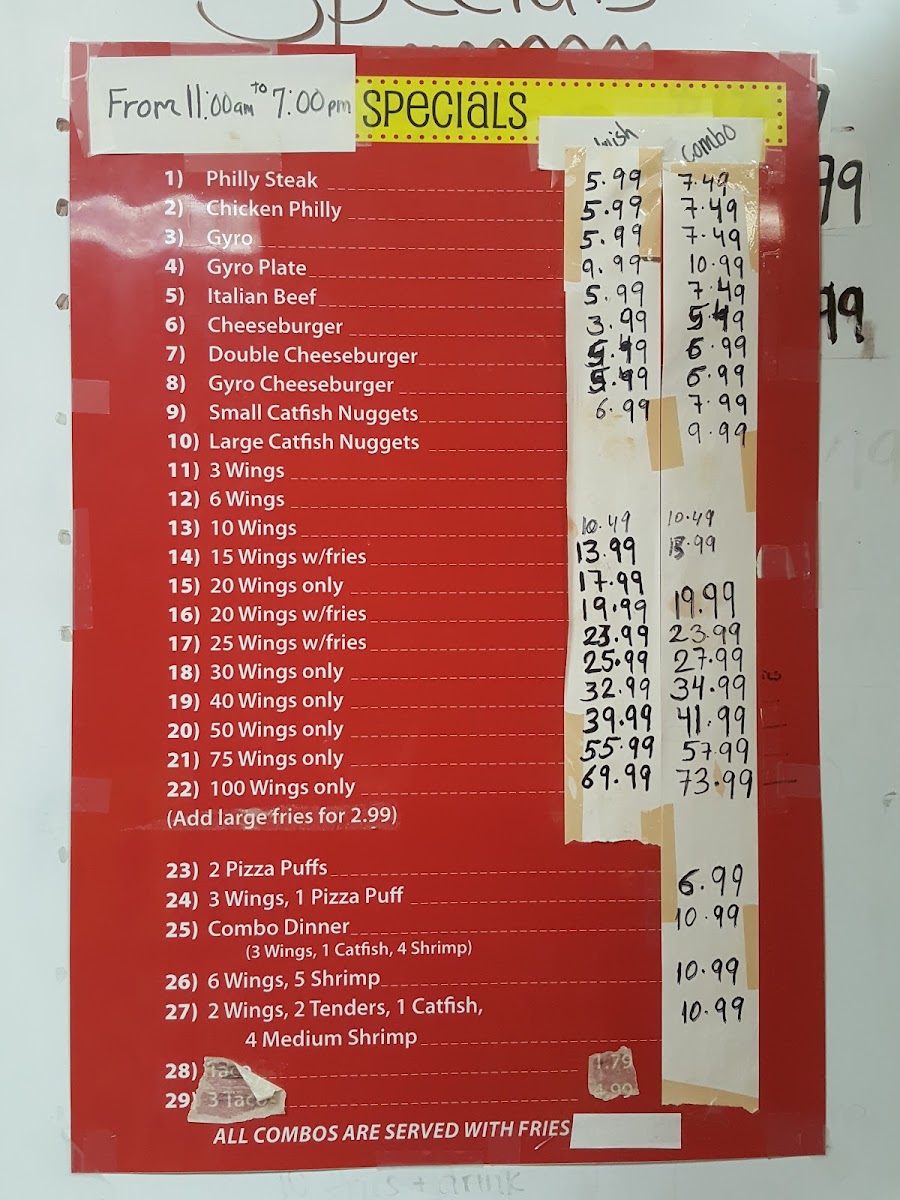 Specials
From 11:00am to 7:00pm SPECIALS
Combo
1) Philly Steak 5.99 7.49
2) Chicken Philly 5.99 7.49
3) Gyro 5.99 7.49
4) Gyro Plate 9.99 10.99
5) Italian Beef 5.99 7.49
6) Cheeseburger 3.99 5.49
7) Double Cheeseburger 5.49 6.99
8) Gyro Cheeseburger 5.49 6.99
9) Small Catfish Nuggets 6.99 7.99
10) Large Catfish Nuggets 9.99
11) 3 Wings
12) 6 Wings
13) 10 Wings 10.49 10.49
14) 15 Wings w/fries 13.99 15.99
15) 20 Wings only 17.99
16) 20 Wings w/fries 19.99 19.99
17) 25 Wings w/fries 23.99 23.99
18) 30 Wings only 25.99 27.99
19) 40 Wings only 32.99 34.99
20) 50 Wings only 39.99 41.99
21) 75 Wings only 55.99 57.99
22) 100 Wings only 69.99 73.99
(Add large fries for 2.99)
23) 2 Pizza Puffs 6.99
24) 3 Wings, 1 Pizza Puff 10.99
25) Combo Dinner
(3 Wings, 1 Catfish, 4 Shrimp)
26) 6 Wings, 5 Shrimp 10.99
27) 2 Wings, 2 Tenders, 1 Catfish, 10.99
4 Medium Shrimp
28) 1.79
29) 3 Tacos
ALL COMBOS ARE SERVED WITH FRIES
+ drink